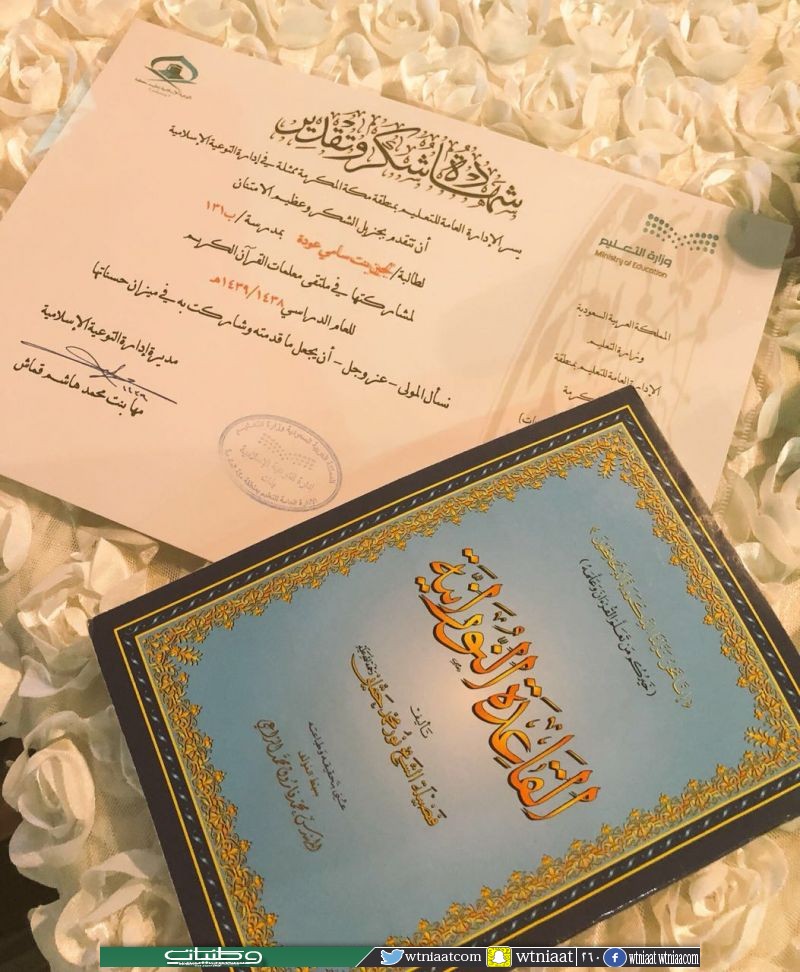 شهادة شكر وتقدير
يسر الإدارة العامة للتعليم بمنطقة مكة المكرمة ممثلة في إدارة التوعية الإسلامية
أن تتقدم بجزيل الشكر وعظيم الامتنان
لطالبة/ لجين بنت سامي عودة بمدرسة/ب١٣١
لمشاركتها في ملتقى معلمات القرآن الكريم
للعام الدراسي ١٤٣٨/١٤٣٩هـ
نسأل المولى - عز وجل - أن يجعل ما قدمته وشاركت به في ميزان حسناتها
مديرة إدارة التوعية الإسلامية
مها بنت محمد هاشم قماش
وزارة التعليم
Ministry of Education
المملكة العربية السعودية
وزارة التعليم
الإدارة العامة للتعليم بمنطقة
(خيركم من تعلم القرآن وعلمه)
القَاعِدَة النُّورَانِيَّة
تأليف
فضيلة الشيخ نور محمد حقاني
وطنيات
wtniaatcom
wtniaat
٢١٠
wtniaat wtniaacom